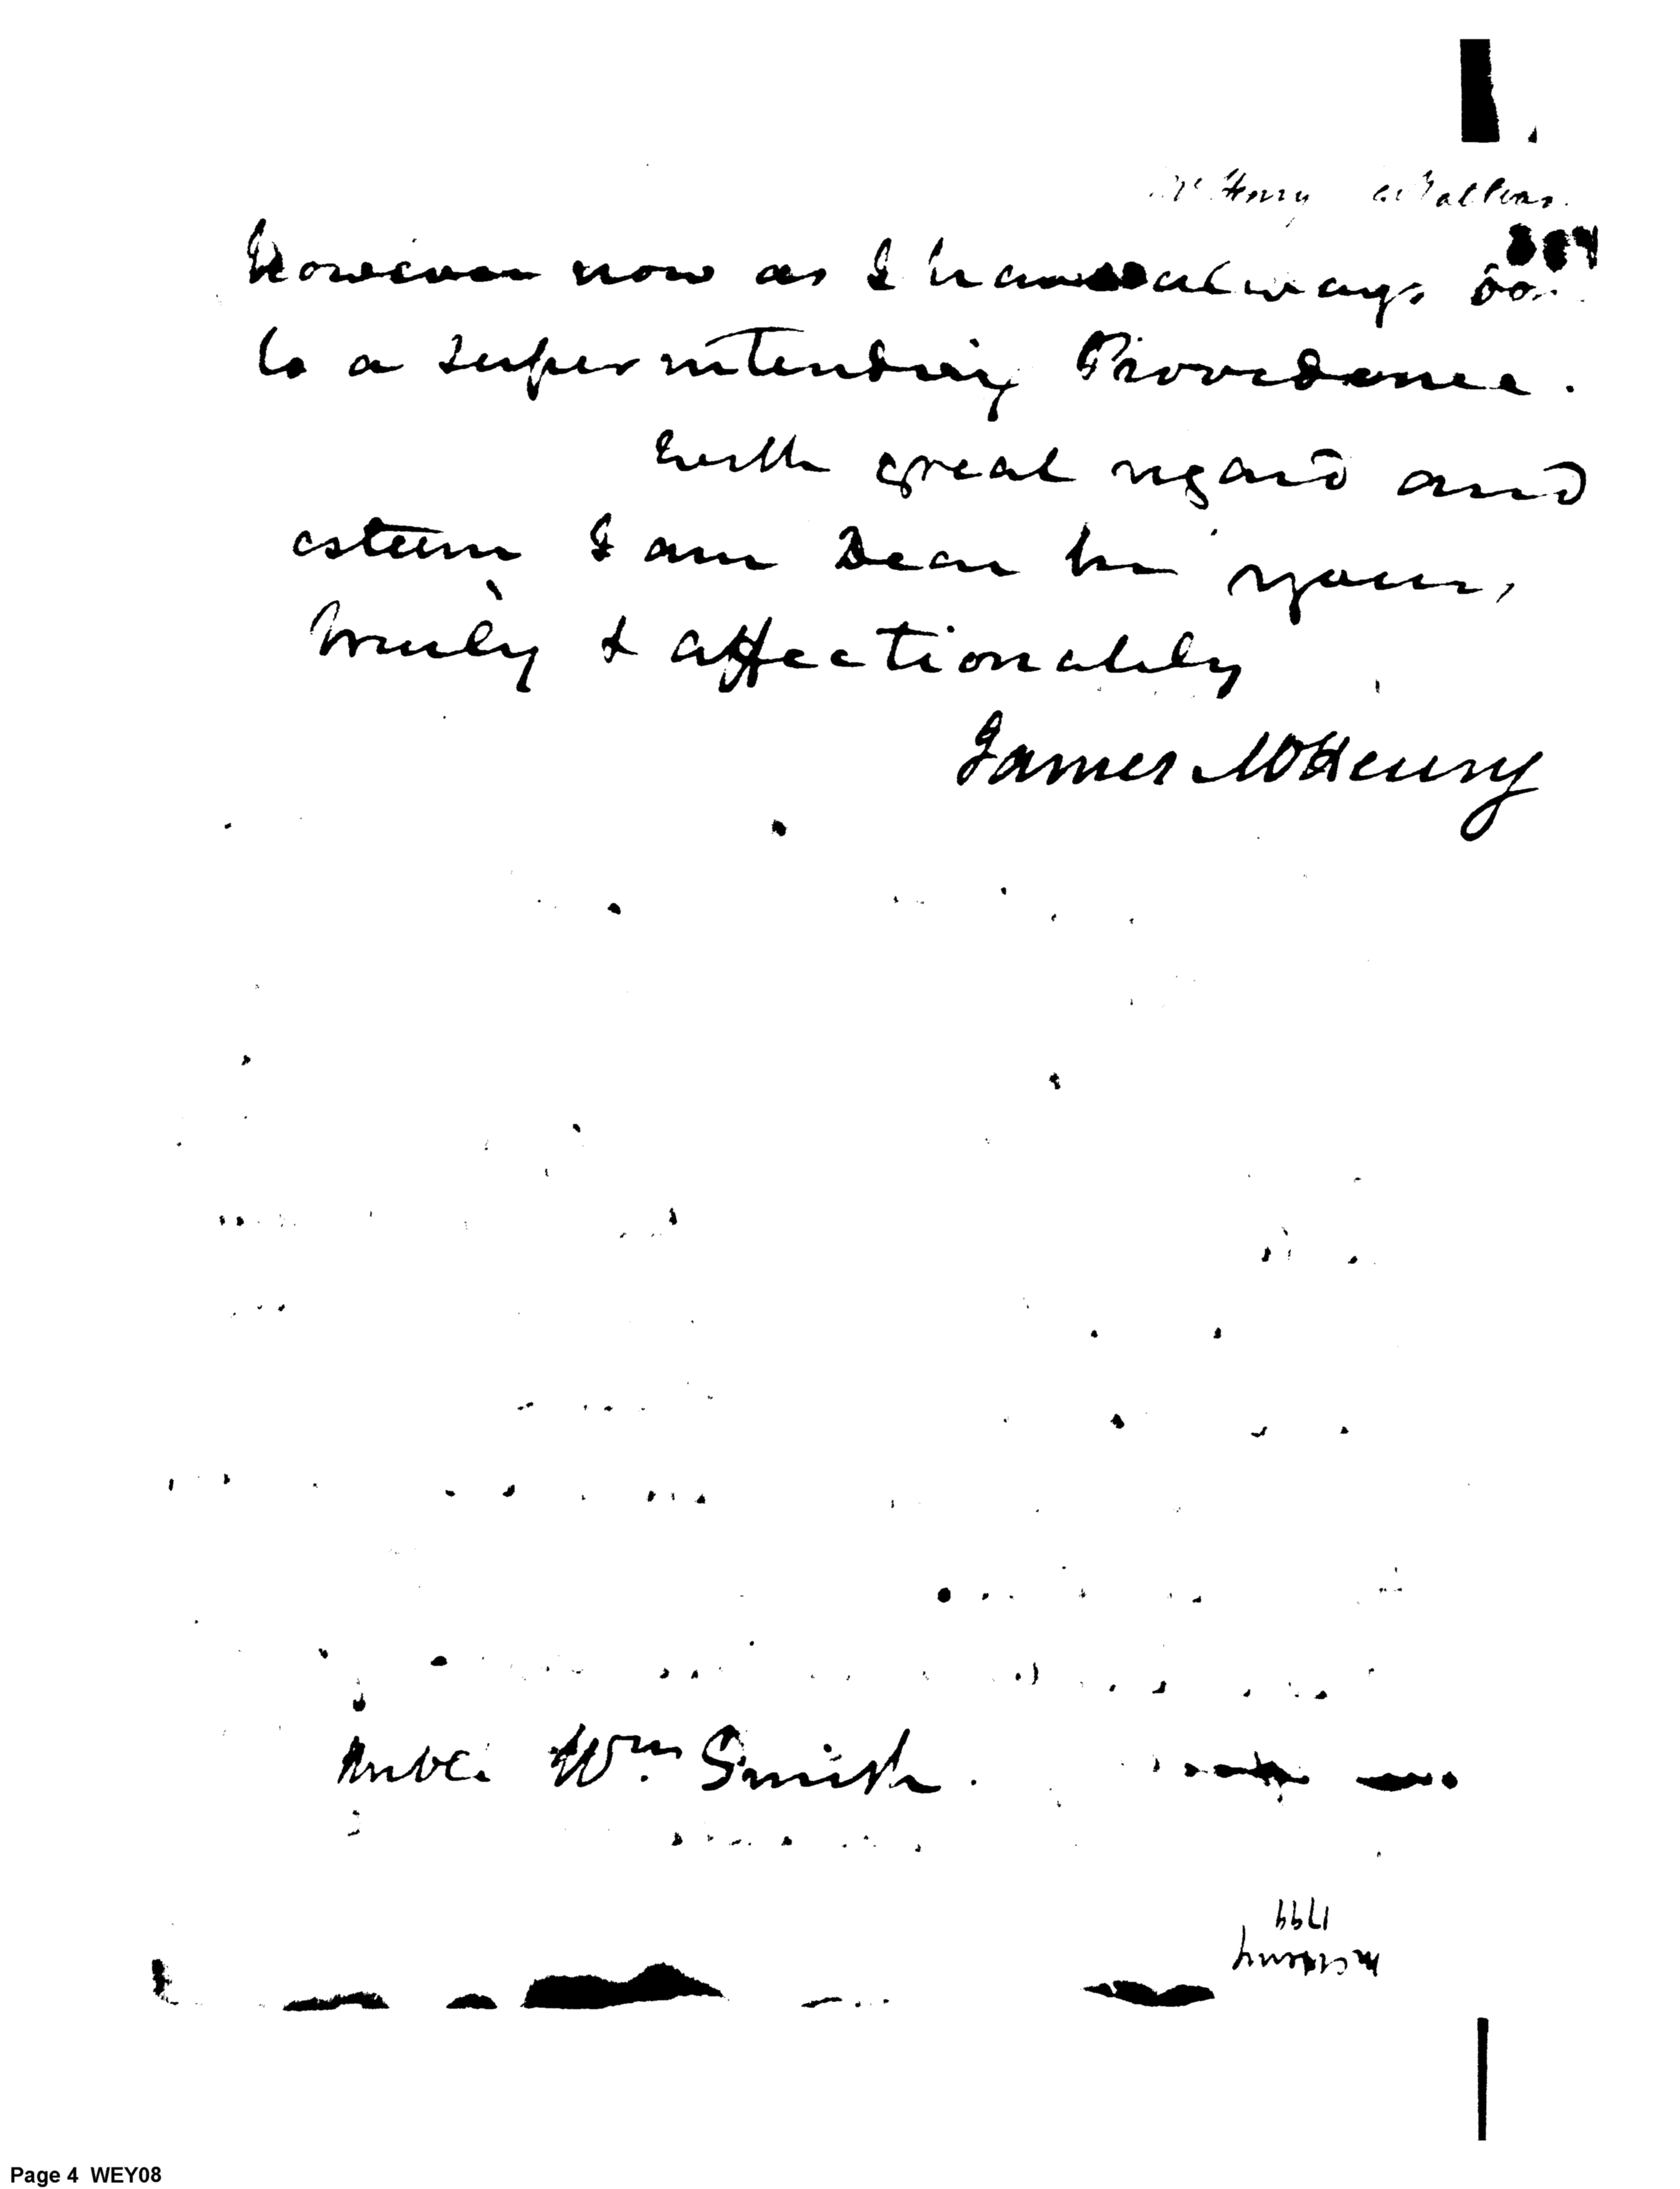 McHenry
However now as I have always do
to a superintending Providence.
With great regard and
esteem I am Dear Sir yours,
truly & affectionately
James McHenry
Wm. Smith.
1799
McHenry
Page 4 WEY08